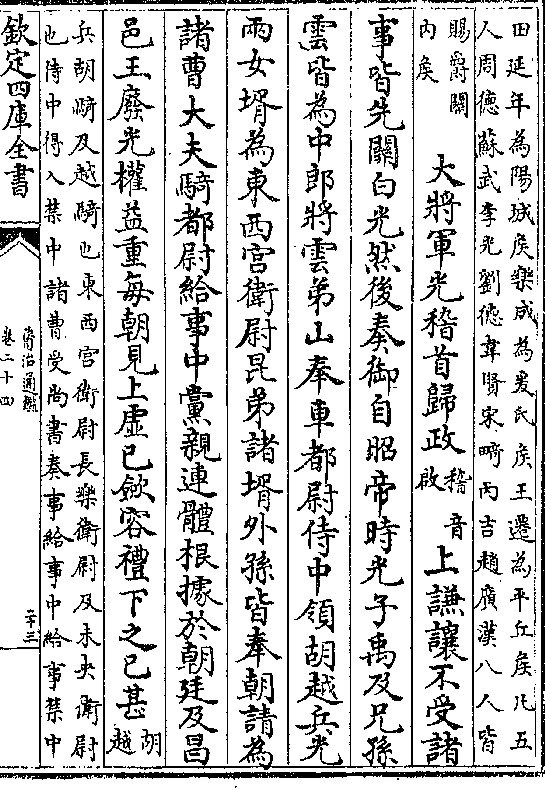 田延年為陽城侯樂成為爰氏侯王遷為平丘侯凡五
人周德蘇武李光劉德韋賢宋畸丙吉趙廣漢八人皆
賜爵關
內侯
大將軍光稽首歸政
稽音
啟
上謙讓不受諸
事皆先關白光然後奏御自昭帝時光子禹及兄孫
雲皆為中郎將雲弟山奉車都尉侍中領胡越兵光
兩女壻為東西宮衛尉昆弟諸壻外孫皆奉朝請為
諸曹大夫騎都尉給事中黨親連體根據於朝廷及昌
邑王廢光權益重每朝見上虛已斂容禮下之已甚
胡
越
兵胡騎及越騎也東西宮衛尉長樂衛尉及未央衛尉
也侍中得入禁中諸曹受尚書奏事給事中給事禁中
欽定四庫全書
資治通鑑
卷二十四
二十三